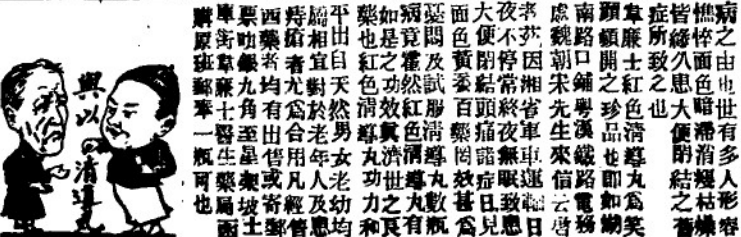 病之由也世有多人形容
憔悴面色暗滯消瘦枯燥
皆緣久患大便閉結之舊
症所致之也
韋廉士紅色清導丸為笑
顏頓開之珍品也即如湖
南路口鋪粵漢鐵路電務
處魏朝宋先生來信云
者因湘省軍車運輸日
夜不停常終夜無眠致患
大便閉結頭痛諸症日見
面色黃萎百藥罔效甚為
憂悶及試服清導丸數瓶
病竟霍然紅色清導丸有
如是之功效眞濟世之良
藥也紅色清導丸功力和
平出自天然男女老幼均
屬相宜對於老年人及患
痔瘡者尤為合用凡經售
西藥者均有出售或寄郵
票叻銀九角至星架坡士
庫街韋廉士醫生藥局函
購原班郵奉一瓶可也
與以清導丸